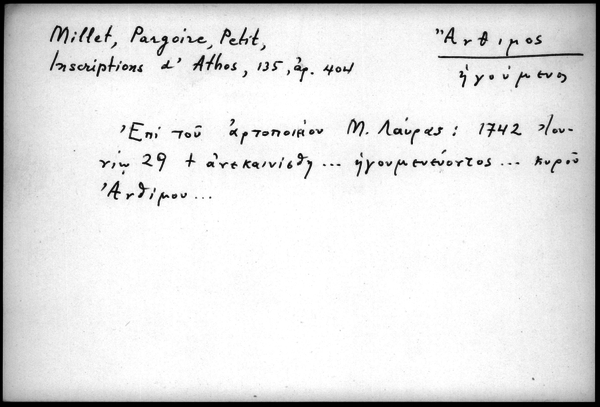 Millet, Pargoire, Petit,
Inscriptions d' Athos, 135, ἀρ. 404
Ἄνθιμος
ἡγούμενος
Ἐπί τοῦ ἀρτοποιείου Μ. Λαύρας : 1742 Ἰου-
νίῳ 29 + ἀνεκαινίσθη ... ἡγουμενεύοντος ... κυροῦ
Ἀνθίμου ...